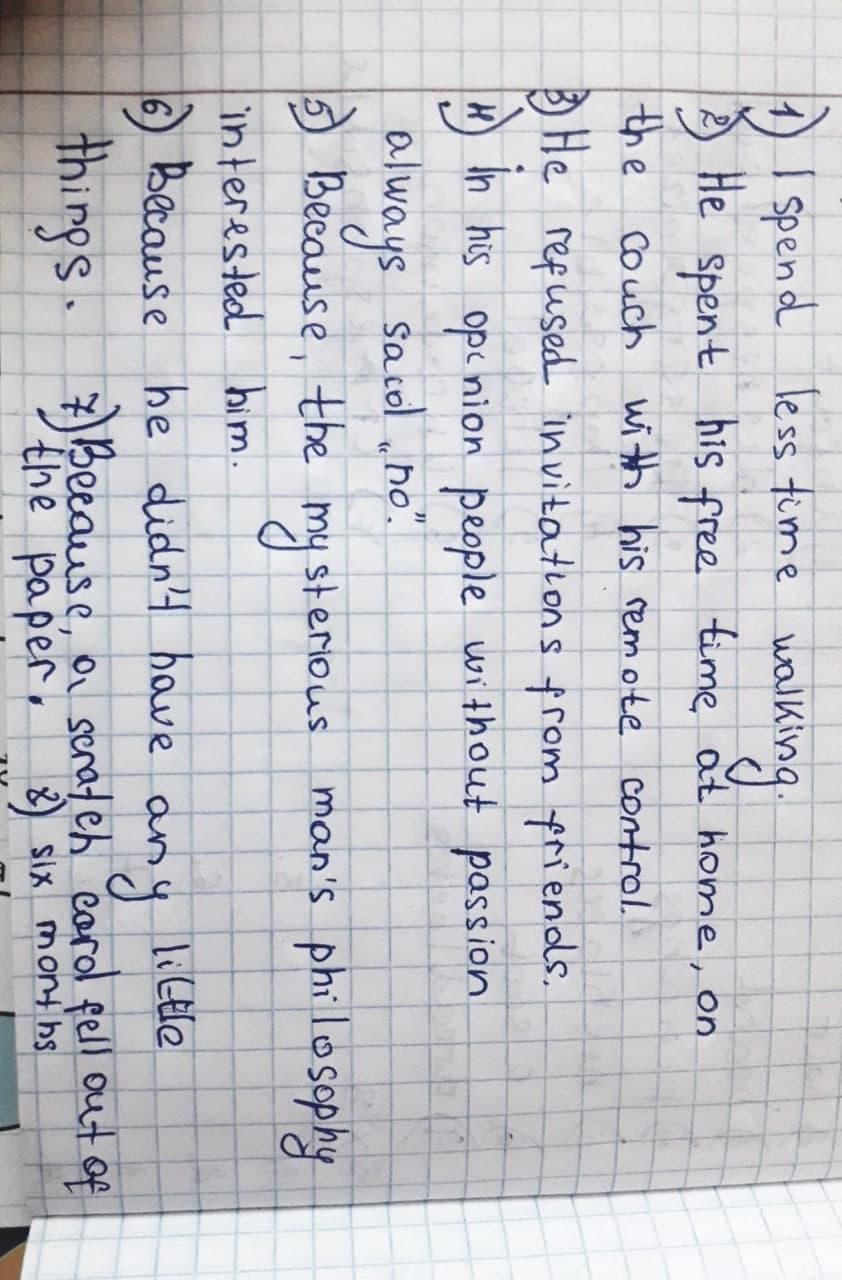 1) I spend less time walking.
2) He spent his free time at home, on
the couch with his remote control.
3) He refused invitations from friends.
4) In his opinion people without passion
always said „no”.
5) Because, the mysterious man's philosophy
interested him.
6) Because he didn't have any little
things. 7) Because, a scratch card fell out of
the paper. 8) six months